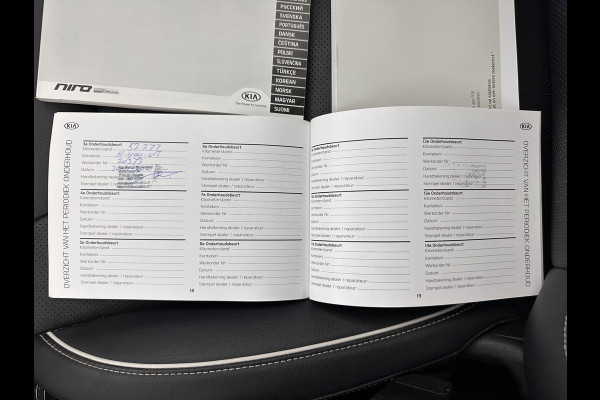 РУССКИЙ
SVENSKA
PORTUGUÊS
DANSK
ČEŠTINA
POLSKI
SLOVENČINA
TÜRKÇE
KOREAN
NORSK
MAGYAR
SUOMI
niro
KIA
KIA
OVERZICHT VAN HET PERIODIEK ONDERHOUD
3e Onderhoudsbeurt
Kilometerstand
Kenteken
Werkorder Nr
Datum
Handtekening dealer / reparateur
Stempel dealer / reparateur
4e Onderhoudsbeurt
Kilometerstand
Kenteken
Werkorder Nr
Datum
Handtekening dealer / reparateur
Stempel dealer / reparateur
5e Onderhoudsbeurt
Kilometerstand
Kenteken
Werkorder Nr
Datum
Handtekening dealer / reparateur
Stempel dealer / reparateur
6e Onderhoudsbeurt
Kilometerstand
Kenteken
Werkorder Nr
Datum
Handtekening dealer / reparateur
Stempel dealer / reparateur
7e Onderhoudsbeurt
Kilometerstand
Kenteken
Werkorder Nr
Datum
Handtekening dealer / reparateur
Stempel dealer / reparateur
8e Onderhoudsbeurt
Kilometerstand
Kenteken
Werkorder Nr
Datum
Handtekening dealer / reparateur
Stempel dealer / reparateur
18
Onderhoudsbeurt
Kilometerstand
Kenteken
Werkorder Nr
Datum
Handtekening dealer / reparateur
Stempel dealer / reparateur
Onderhoudsbeurt
Kilometerstand
Kenteken
Werkorder Nr
Datum
Handtekening dealer / reparateur
Stempel dealer / reparateur
Onderhoudsbeurt
Kilometerstand
Kenteken
Werkorder Nr
Datum
Handtekening dealer / reparateur
Stempel dealer / reparateur
12e Onderhoudsbeurt
Kilometerstand
Kenteken
Werkorder Nr
Datum
Handtekening dealer / reparateur
Stempel dealer / reparateur
13e Onderhoudsbeurt
Kilometerstand
Kenteken
Werkorder Nr
Datum
Handtekening dealer / reparateur
Stempel dealer / reparateur
14e Onderhoudsbeurt
Kilometerstand
Kenteken
Werkorder Nr
Datum
Handtekening dealer / reparateur
Stempel dealer / reparateur
19
KIA
OVERZICHT VAN HET PERIODIEK ONDERHOUD